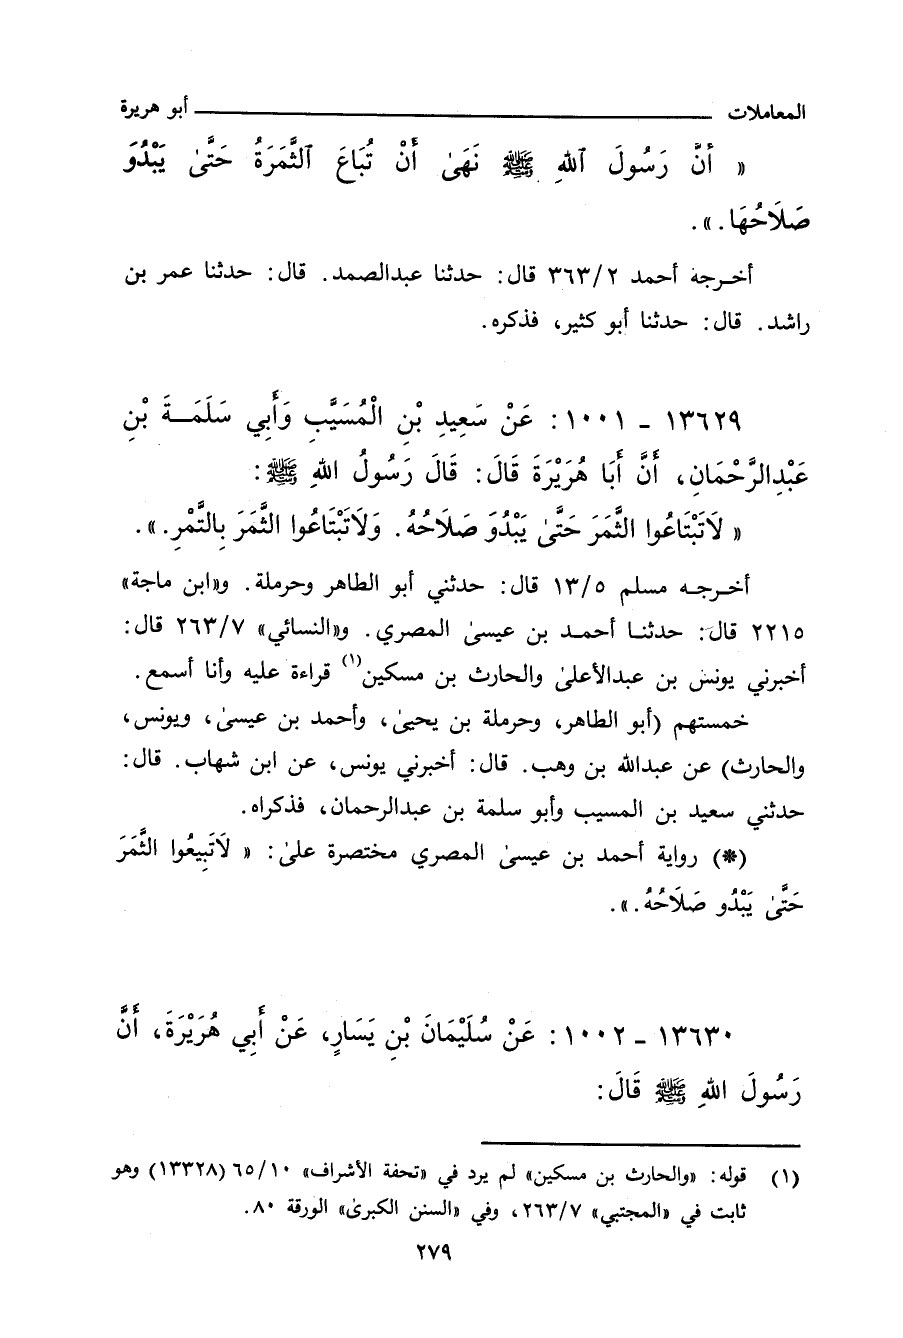 المعاملات ــــــــــ أبو هريرة
« أَنَّ رَسُولَ ٱللهِ ﷺ نَهَىٰ أَنْ تُبَاعَ ٱلثَّمَرَةُ حَتَّىٰ يَبْدُوَ
صَلَاحُهَا. ».
أخـرجه أحمد ٣٦٣/٢ قال: حدثنا عبدالصمد. قال: حدثنا عمر بن
راشد. قال: حدثنا أبو كثير، فذكره.
١٣٦٢٩ - ١٠٠١: عَنْ سَعِيدِ بْنِ الْمُسَيَّبِ وَأَبِي سَلَمَـةَ بْنِ
عَبْدِالرَّحْمَانِ، أَنَّ أَبَا هُرَيْرَةَ قَالَ: قَالَ رَسُولُ اللهِ ﷺ:
« لَاتَبْتَاعُوا الثَّمَرَ حَتَّىٰ يَبْدُوَ صَلَاحُهُ. وَلَاتَبْتَاعُوا الثَّمَرَ بِالتَّمْرِ. ».
أخـرجـه مسلم ١٣/٥ قال: حدثني أبو الطاهر وحرملة. و«ابن ماجة»
٢٢١٥ قال: حدثنـا أحمـد بن عيسىٰ المصري. و«النسائي» ٢٦٣/٧ قال:
أخبرني يونس بن عبدالأعلىٰ والحارث بن مسكين(١) قراءة عليه وأنا أسمع.
خمستهم (أبو الطاهر، وحرملة بن يحيىٰ، وأحمد بن عيسىٰ، ويونس،
والحارث) عن عبدالله بن وهب. قال: أخبرني يونس، عن ابن شهاب. قال:
حدثني سعيد بن المسيب وأبو سلمة بن عبدالرحمان، فذكراه.
(*) رواية أحمد بن عيسىٰ المصري مختصرة علىٰ: « لَاتَبِيعُوا الثَّمَرَ
حَتَّىٰ يَبْدُو صَلَاحُهُ. ».
١٣٦٣٠ - ١٠٠٢: عَنْ سُلَيْمَانَ بْنِ يَسَارٍ، عَنْ أَبِي هُرَيْرَةَ، أَنَّ
رَسُولَ اللهِ ﷺ قَالَ:
(١) قوله: «والحارث بن مسكين» لم يرد في «تحفة الأشراف» ٦٥/١٠ (١٣٣٢٨) وهو
ثابت في «المجتبي» ٢٦٣/٧، وفي «السنن الكبرىٰ» الورقة ٨٠.
٢٧٩